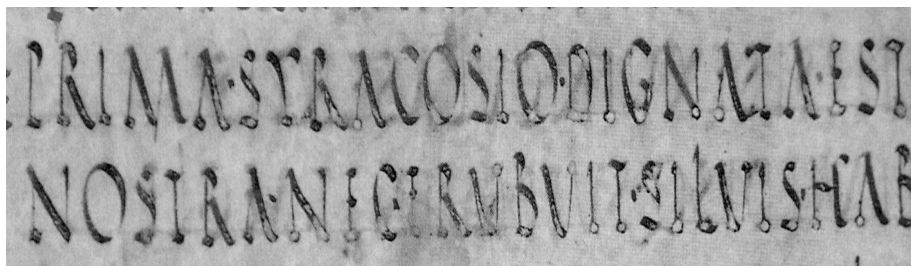 PRIMA·SYRACOSIO·DIGNATA·EST
NOSTRA·NEC·ERVBVIT·SILVIS·HAB